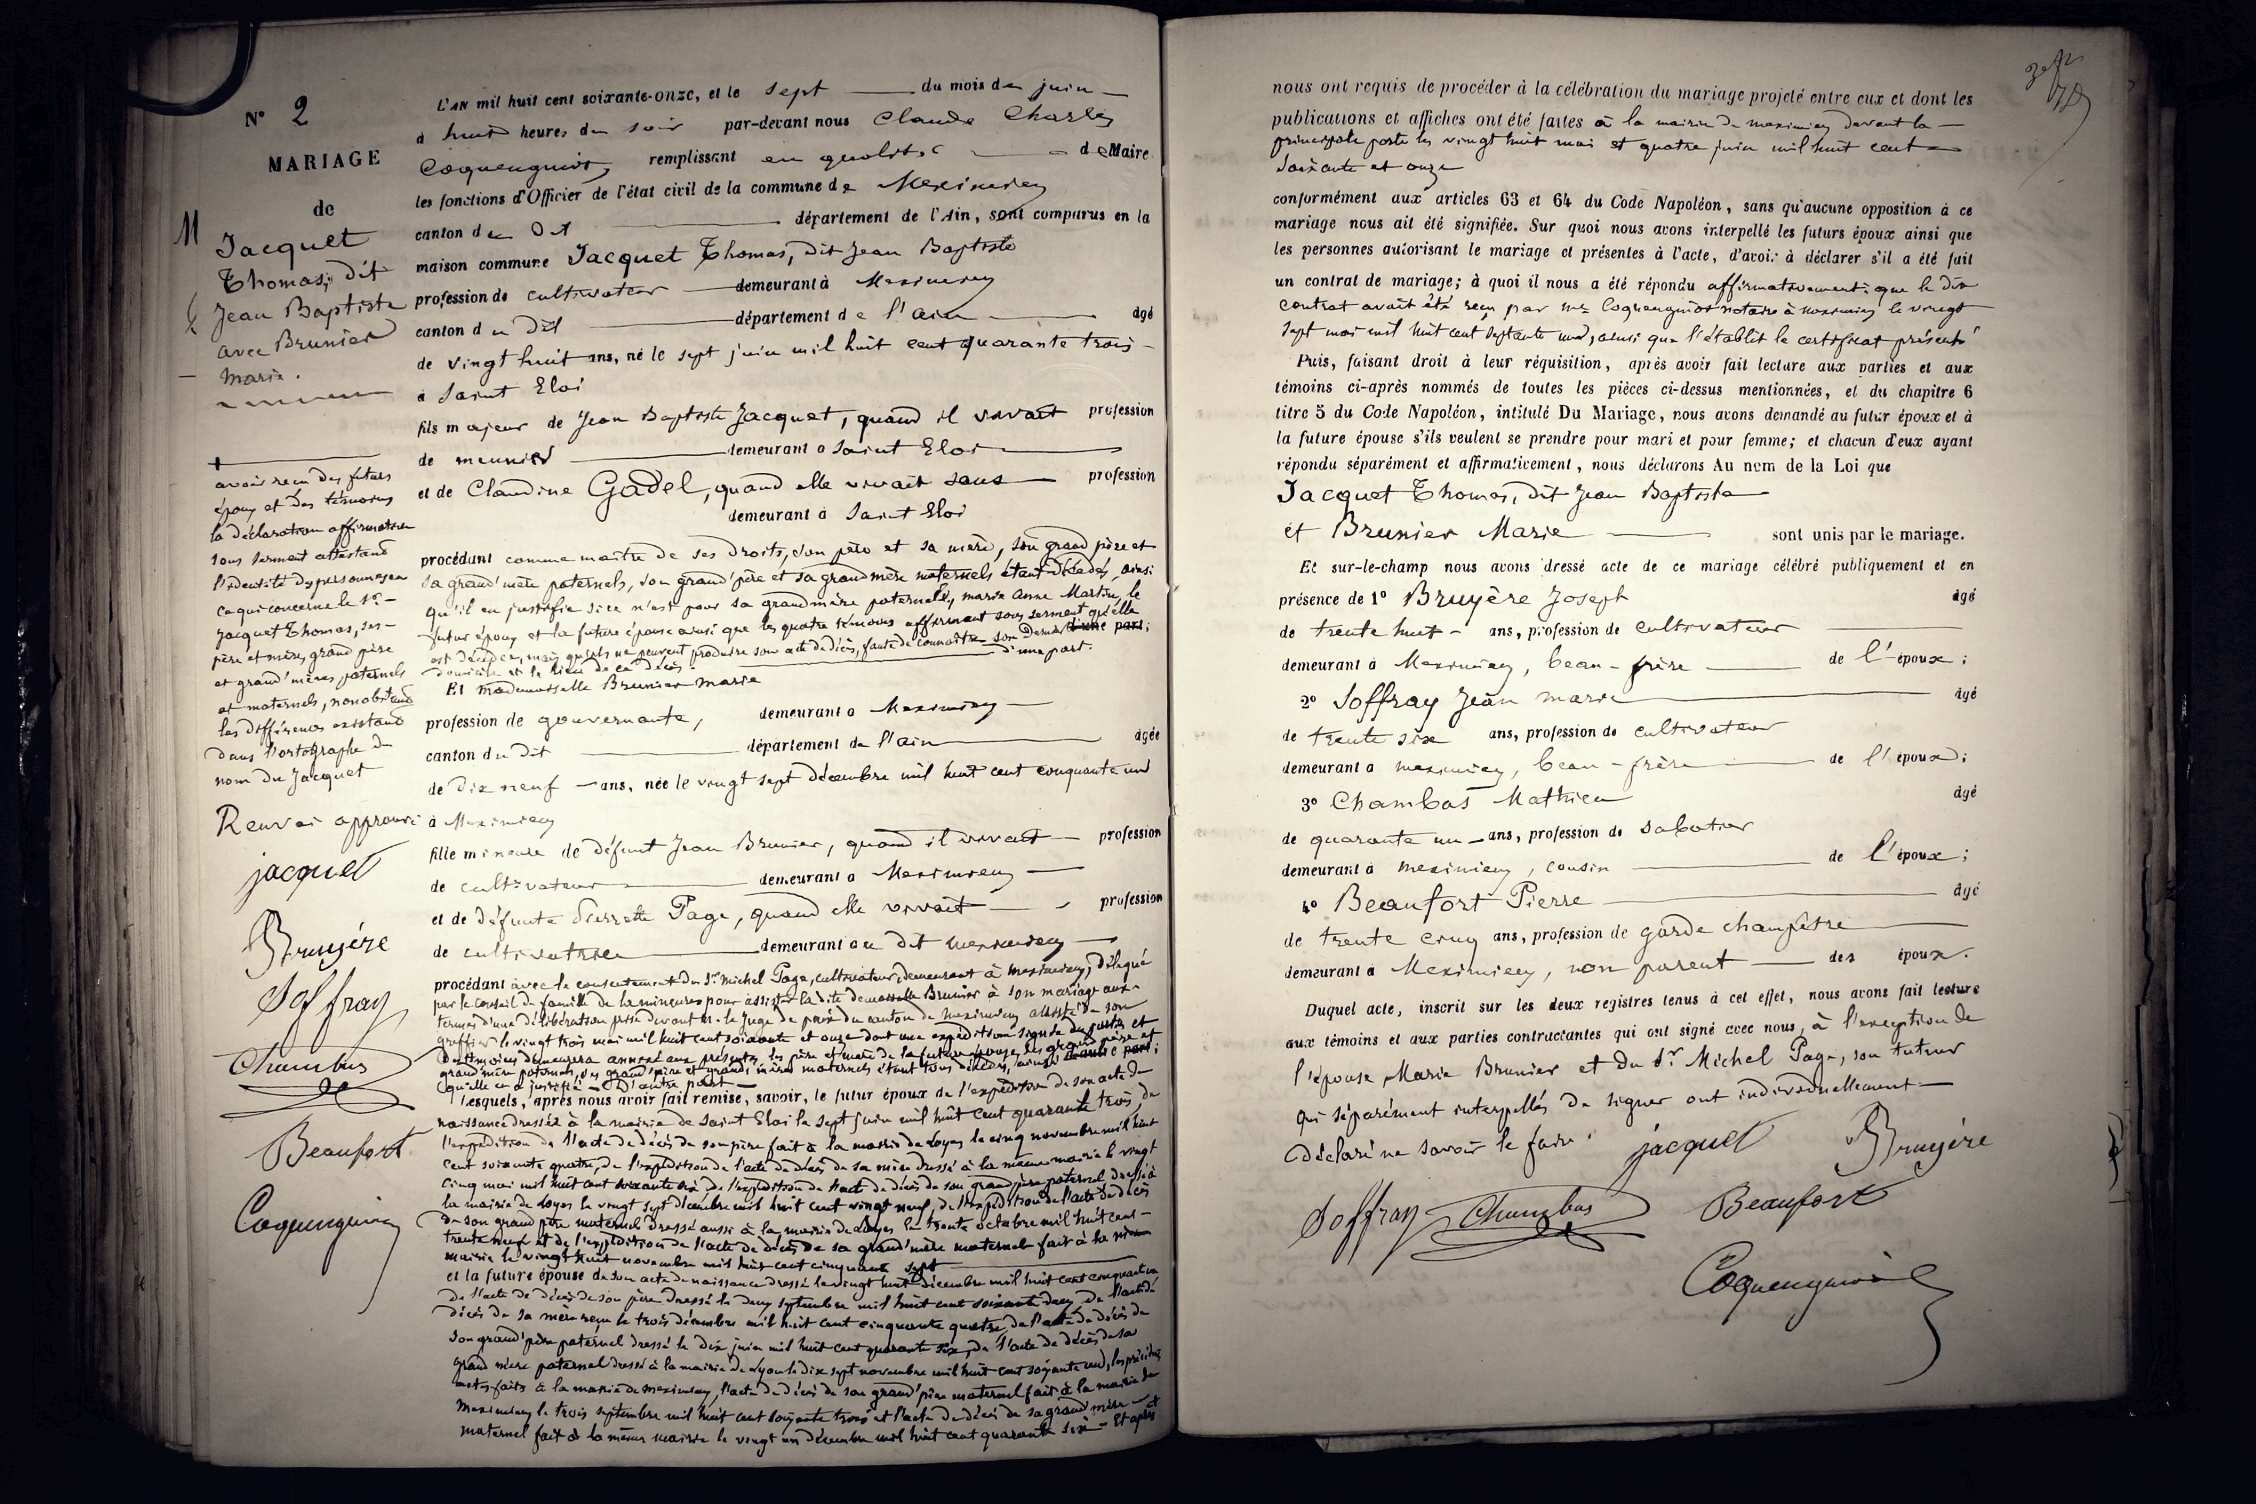 N° 2
MARIAGE
de
Jacquet
Thomas, dit
Jean Baptiste
avec Brunier
Marie.
M
L'AN mil huit cent soixante-onze, et le sept du mois de juin
à huit heures du soir par-devant nous Claude Charles
Coquengniot, remplissant en qualité de Maire
les fonctions d'Officier de l'état civil de la commune de Meximieu
canton du dit département de l'Ain, sont comparus en la
maison commune Jacquet Thomas, dit Jean Baptiste
profession de cultivateur demeurant à Meximieu
canton du dit département de l'ain âgé
de vingt huit ans, né le sept juin mil huit cent quarante trois
à Saint Eloi
fils majeur de Jean Baptiste Jacquet, quand il vivait profession
de meunier demeurant à Saint Eloi
et de Claudine Gadel, quand elle vivait sans profession
demeurant à Saint Eloi
procédant comme maître de ses droits, son père et sa mère, son grand père et
sa grand'mère paternels, son grand'père et sa grandmère maternels étant décédés, ainsi
qu'il en justifie si ce n'est pour sa grandmère paternelle, marie Anne Martin, le
futur époux et la future épouse ainsi que les quatre témoins affirmant sous serment qu'elle
est décédée, mais qu'ils ne peuvent produire son acte de décès, faute de connaître son dernier d'une part;
domicile et le lieu de ce décès. d'une part.
Et mademoiselle Brunier marie
profession de gouvernante, demeurant à Meximieu
canton du dit département de l'ain âgée
de dix neuf ans, née le vingt sept décembre mil huit cent cinquante un
à Meximieu
fille mineure de défunt Jean Brunier, quand il vivait profession
de cultivateur demeurant à Meximieu
et de défunte Pierrette Page, quand elle vivait profession
de cultivatrice demeurant au dit meximieu
procédant avec le consentement du Sr. Michel Page, cultivateur, demeurant à meximieu, délégué
par le conseil de famille de la mineure pour assister la dite demoiselle Brunier à son mariage aux
termes d'une délibération prise devant M. le Juge de paix du canton de meximieu assisté de son
greffier le vingt trois mai mil huit cent soixante et onze dont une expédition signée des parties et
des témoins demeurera annexé aux présentes, les père et mère de la future épouse, ses grand père et
grand'mère paternels, ses grand'père et grand'mère maternels étant tous décédés, ainsi d'autre part;
qu'elle en a justifié - D'autre part -
Lesquels, après nous avoir fait remise, savoir, le futur époux de l'expédition de son acte de
naissance dressée à la mairie de Saint Eloi le sept juin mil huit cent quarante trois, de
l'expédition de l'acte de décès de son père fait à la mairie de Loyes le cinq novembre mil huit
cent soixante quatre, de l'expédition de l'acte de décès de sa mère dressé à la même mairie le vingt
cinq mai mil huit cent soixante six de l'expédition de l'acte de décès de son grand père paternel dressé à
la mairie de Loyes le vingt sept décembre mil huit cent vingt neuf, de l'expédition de l'acte de décès
de son grand père maternel dressé aussi à la mairie de Loyes le trente octobre mil huit cent
trente neuf et de l'expédition de l'acte de décès de sa grand'mère maternelle fait à la même
mairie le vingt huit novembre mil huit cent cinquante sept
et la future épouse de son acte de naissance dressé le vingt huit décembre mil huit cent cinquante un
de l'acte de décès de son père dressé le deux septembre mil huit cent soixante deux, de l'acte de
décès de sa mère reçu le trois décembre mil huit cent cinquante quatre, de l'acte de décès de
son grand'père paternel dressé le dix juin mil huit cent quarante six, de l'acte de décès de sa
grand mère paternel dressé à la mairie de Lyon le dix sept novembre mil huit cent soixante un, les précédents
actes faits à la mairie de meximieu, l'acte de décès de son grand'père maternel fait à la mairie de
Meximieu le trois septembre mil huit cent soixante trois et l'acte de décès de sa grand mère
maternel fait à la même mairie le vingt un décembre mil huit cent quarante six - Et après
avoir reçu des futurs
époux et des témoins
la déclaration affirmative
sous serment attestant
l'identité des personnes en
ce qui concerne le Sr.
Jacquet Thomas, ses
père et mère, grand père
et grand'mères paternels
et maternels, nonobstant
les différences existant
dans l'ortographe du
nom du Jacquet
Renvoi approuvé
jacquet
Bruyére
Soffray
Chambas
Beaufort
Coquengniot
nous ont requis de procéder à la célébration du mariage projeté entre eux et dont les
publications et affiches ont été faites à la mairie de meximieu devant la
principale porte les vingt huit mai et quatre juin mil huit cent
soixante et onze
conformément aux articles 63 et 64 du Code Napoléon, sans qu'aucune opposition à ce
mariage nous ait été signifiée. Sur quoi nous avons interpellé les futurs époux ainsi que
les personnes autorisant le mariage et présentes à l'acte, d'avoir à déclarer s'il a été fait
un contrat de mariage; à quoi il nous a été répondu affirmativement: que le dit
contrat avait été reçu par me Coquengniot notaire à meximieu le vingt
sept mai mil huit cent septante un, ainsi que l'établit le certificat présenté
Puis, faisant droit à leur réquisition, après avoir fait lecture aux parties et aux
témoins ci-après nommés de toutes les pièces ci-dessus mentionnées, et du chapitre 6
titre 5 du Code Napoléon, intitulé Du Mariage, nous avons demandé au futur époux et à
la future épouse s'ils veulent se prendre pour mari et pour femme; et chacun d'eux ayant
répondu séparément et affirmativement, nous déclarons Au nom de la Loi que
Jacquet Thomas, dit Jean Baptiste
et Brunier Marie sont unis par le mariage.
Et sur-le-champ nous avons dressé acte de ce mariage célébré publiquement et en
présence de 1° Bruyère Joseph âgé
de trente huit ans, profession de cultivateur
demeurant à Meximieu, beau-frère de l'époux;
2° Soffray Jean marie âgé
de trente six ans, profession de cultivateur
demeurant à meximieu, beau-frère de l'époux;
3° Chambas Mathieu âgé
de quarante un ans, profession de sabotier
demeurant à meximieu, cousin de l'époux;
4° Beaufort Pierre âgé
de trente cinq ans, profession de garde champêtre
demeurant à Meximieu, non parent des époux.
Duquel acte, inscrit sur les deux registres tenus à cet effet, nous avons fait lecture
aux témoins et aux parties contractantes qui ont signé avec nous, à l'exception de
l'épouse Marie Brunier et du Sr. Michel Page, son tuteur
qui séparément interpellés de signer ont individuellement
déclaré ne savoir le faire. jacquet Bruyére
Soffray Chambas Beaufort
Coquengniot